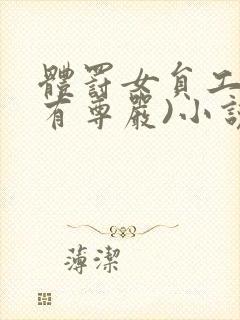 體罰女員工
有尊嚴)小說
薄潔